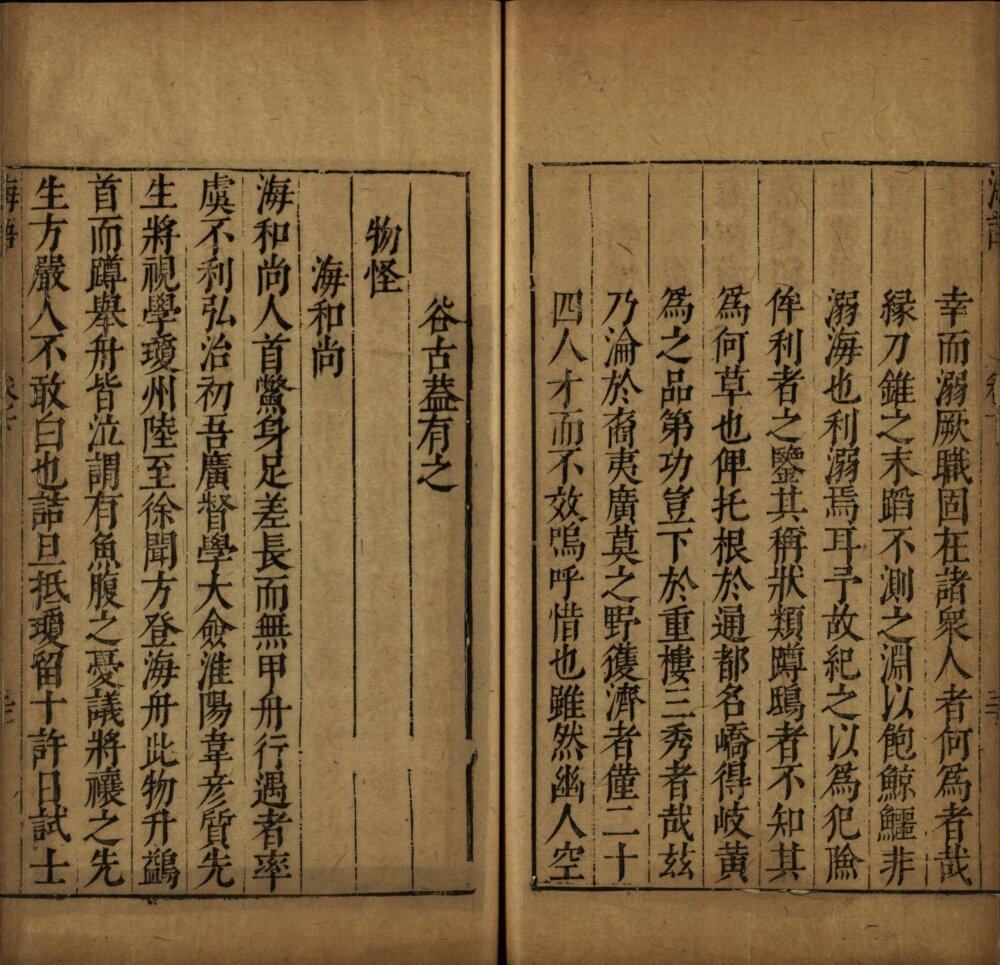 幸而溺厥職固在諸衆人者何爲者哉
縁刀錐之末蹈不測之淵以飽鯨鱷非
溺海也利溺焉耳予故紀之以爲犯險
侔利者之鑒其稱狀類蹲鴟者不知其
爲何草也俾托根於通都名嶠得岐黃
爲之品第功豈下於重樓三秀者哉玆
乃淪於裔夷廣莫之野獲濟者僅二十
四人才而不效嗚呼惜也雖然幽人空
谷古葢有之
物怪
海和尚
海和尚人首鱉身足差長而無甲舟行遇者率
虞不利弘治初吾廣督學大僉淮陽韋彦質先
生將視學瓊州陸至徐聞方登海舟此物升鷁
首而蹲舉舟皆泣謂有魚腹之憂議將禳之先
生方嚴人不敢白也詰旦抵瓊留十許日試士
海語